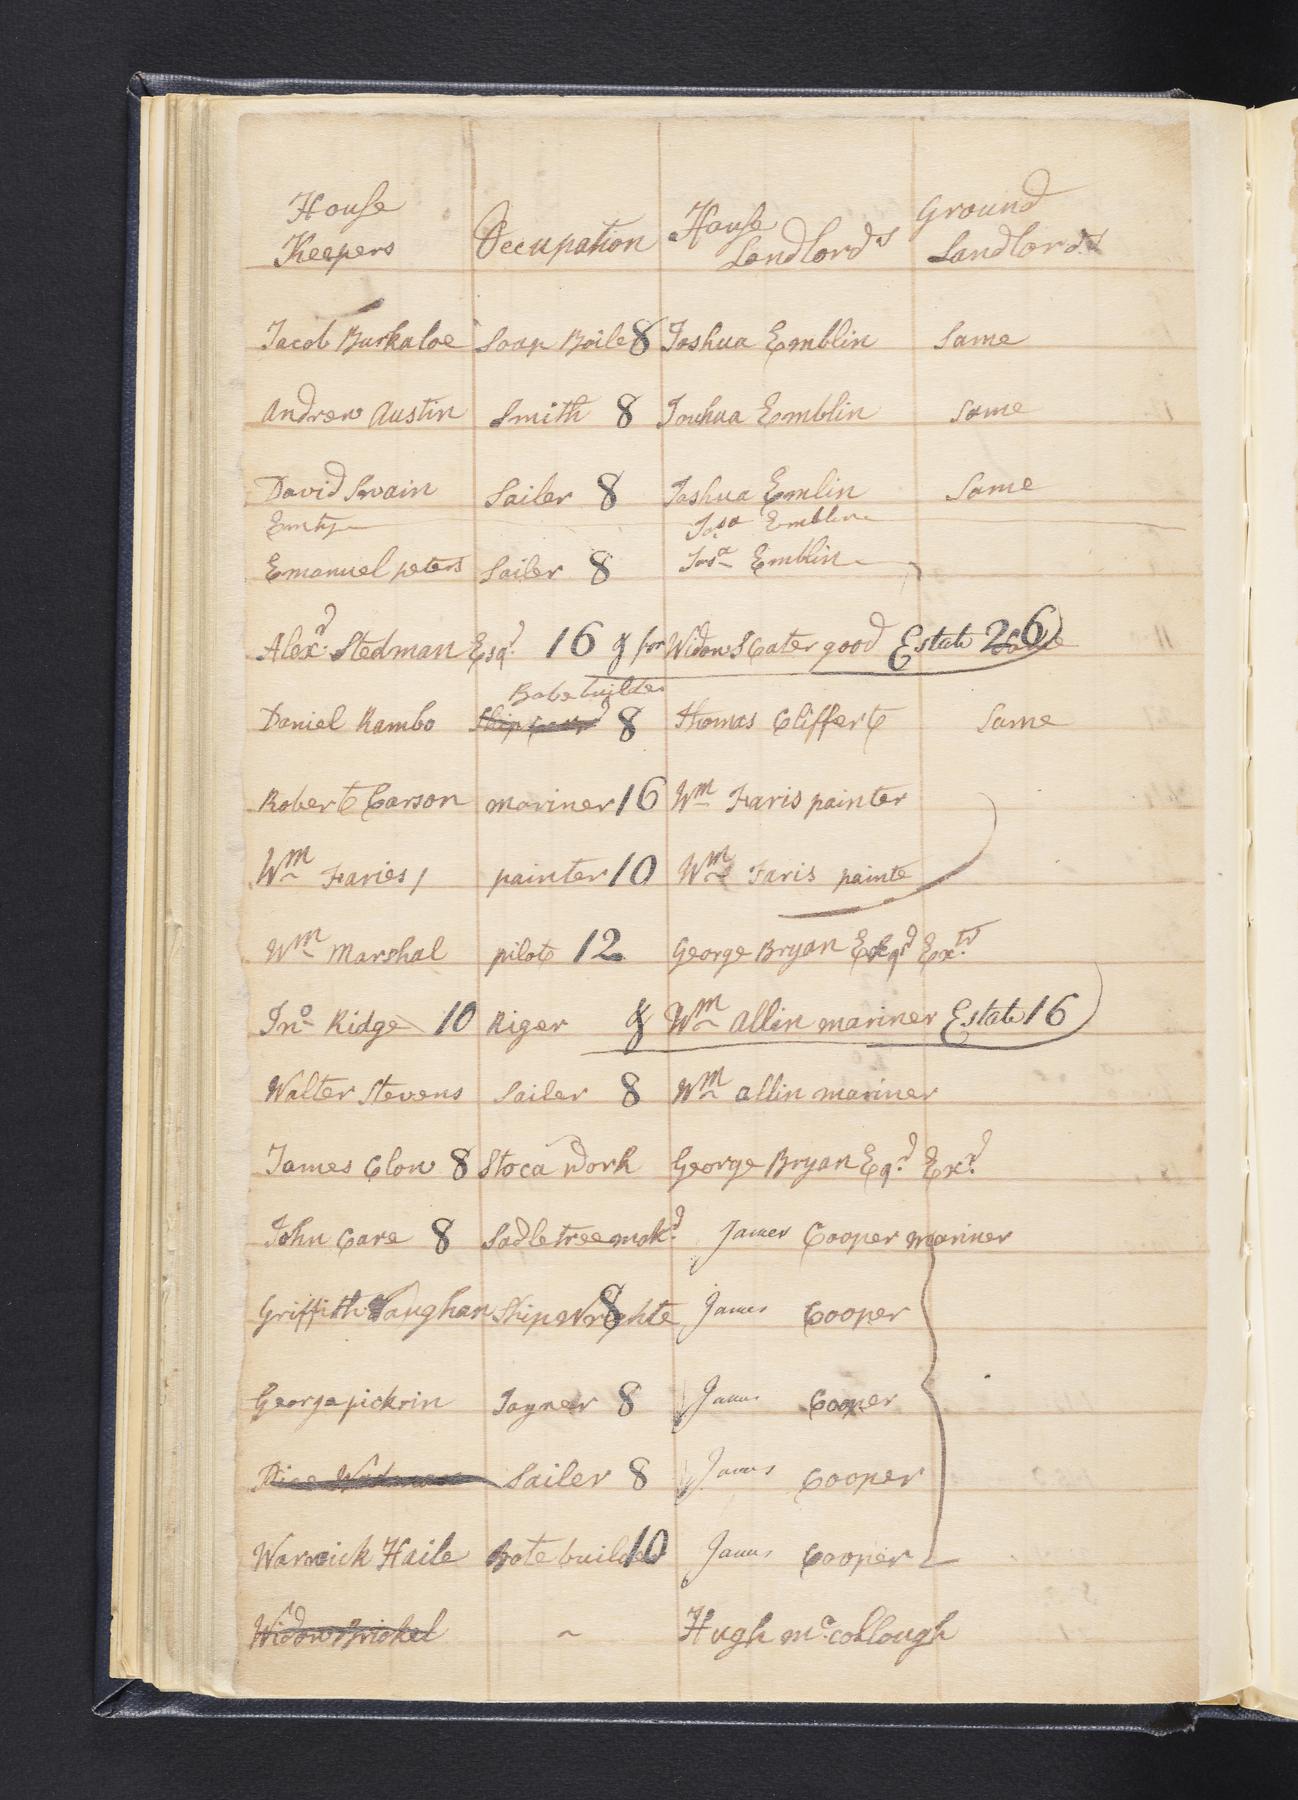 House Keepers Occupation House Landlords Ground Landlords
Jacob Burkaloe Soap Boiler 8 Joshua Emblin Same
Andrew Austin Smith 8 Joshua Emblin Same
David Swain Sailer 8 Joshua Emlin Same
Emty Josa Emblin
Emanuel peters Sailer 8 Josa Emblin
Alexr. Stedman Esqr. 16 & for Widow Scatergood Estate 26
Bote builder
Daniel Rambo Ship 8 Thomas Cliffert Same
Robert Carson mariner 16 Wm Faris painter
Wm Faries painter 10 Wm Faris painte
Wm Marshal pilote 12 George Bryan Esqr Extr
Jno Ridge 10 Riger & Wm Allin mariner Estate 16
Walter Stevens Sailer 8 Wm allin mariner
James Clow 8 Stoca Work George Bryan Eqr. Exr.
John Care 8 Sadletree makr. James Cooper mariner
Griffith Vaughan Ship Wrighte 8 James Cooper
George pickrin Joyner 8 James Cooper
Sailer 8 James Cooper
Warwick Haile Bote builder 10 James Cooper
Widow Brickel ~ Hugh mccollough